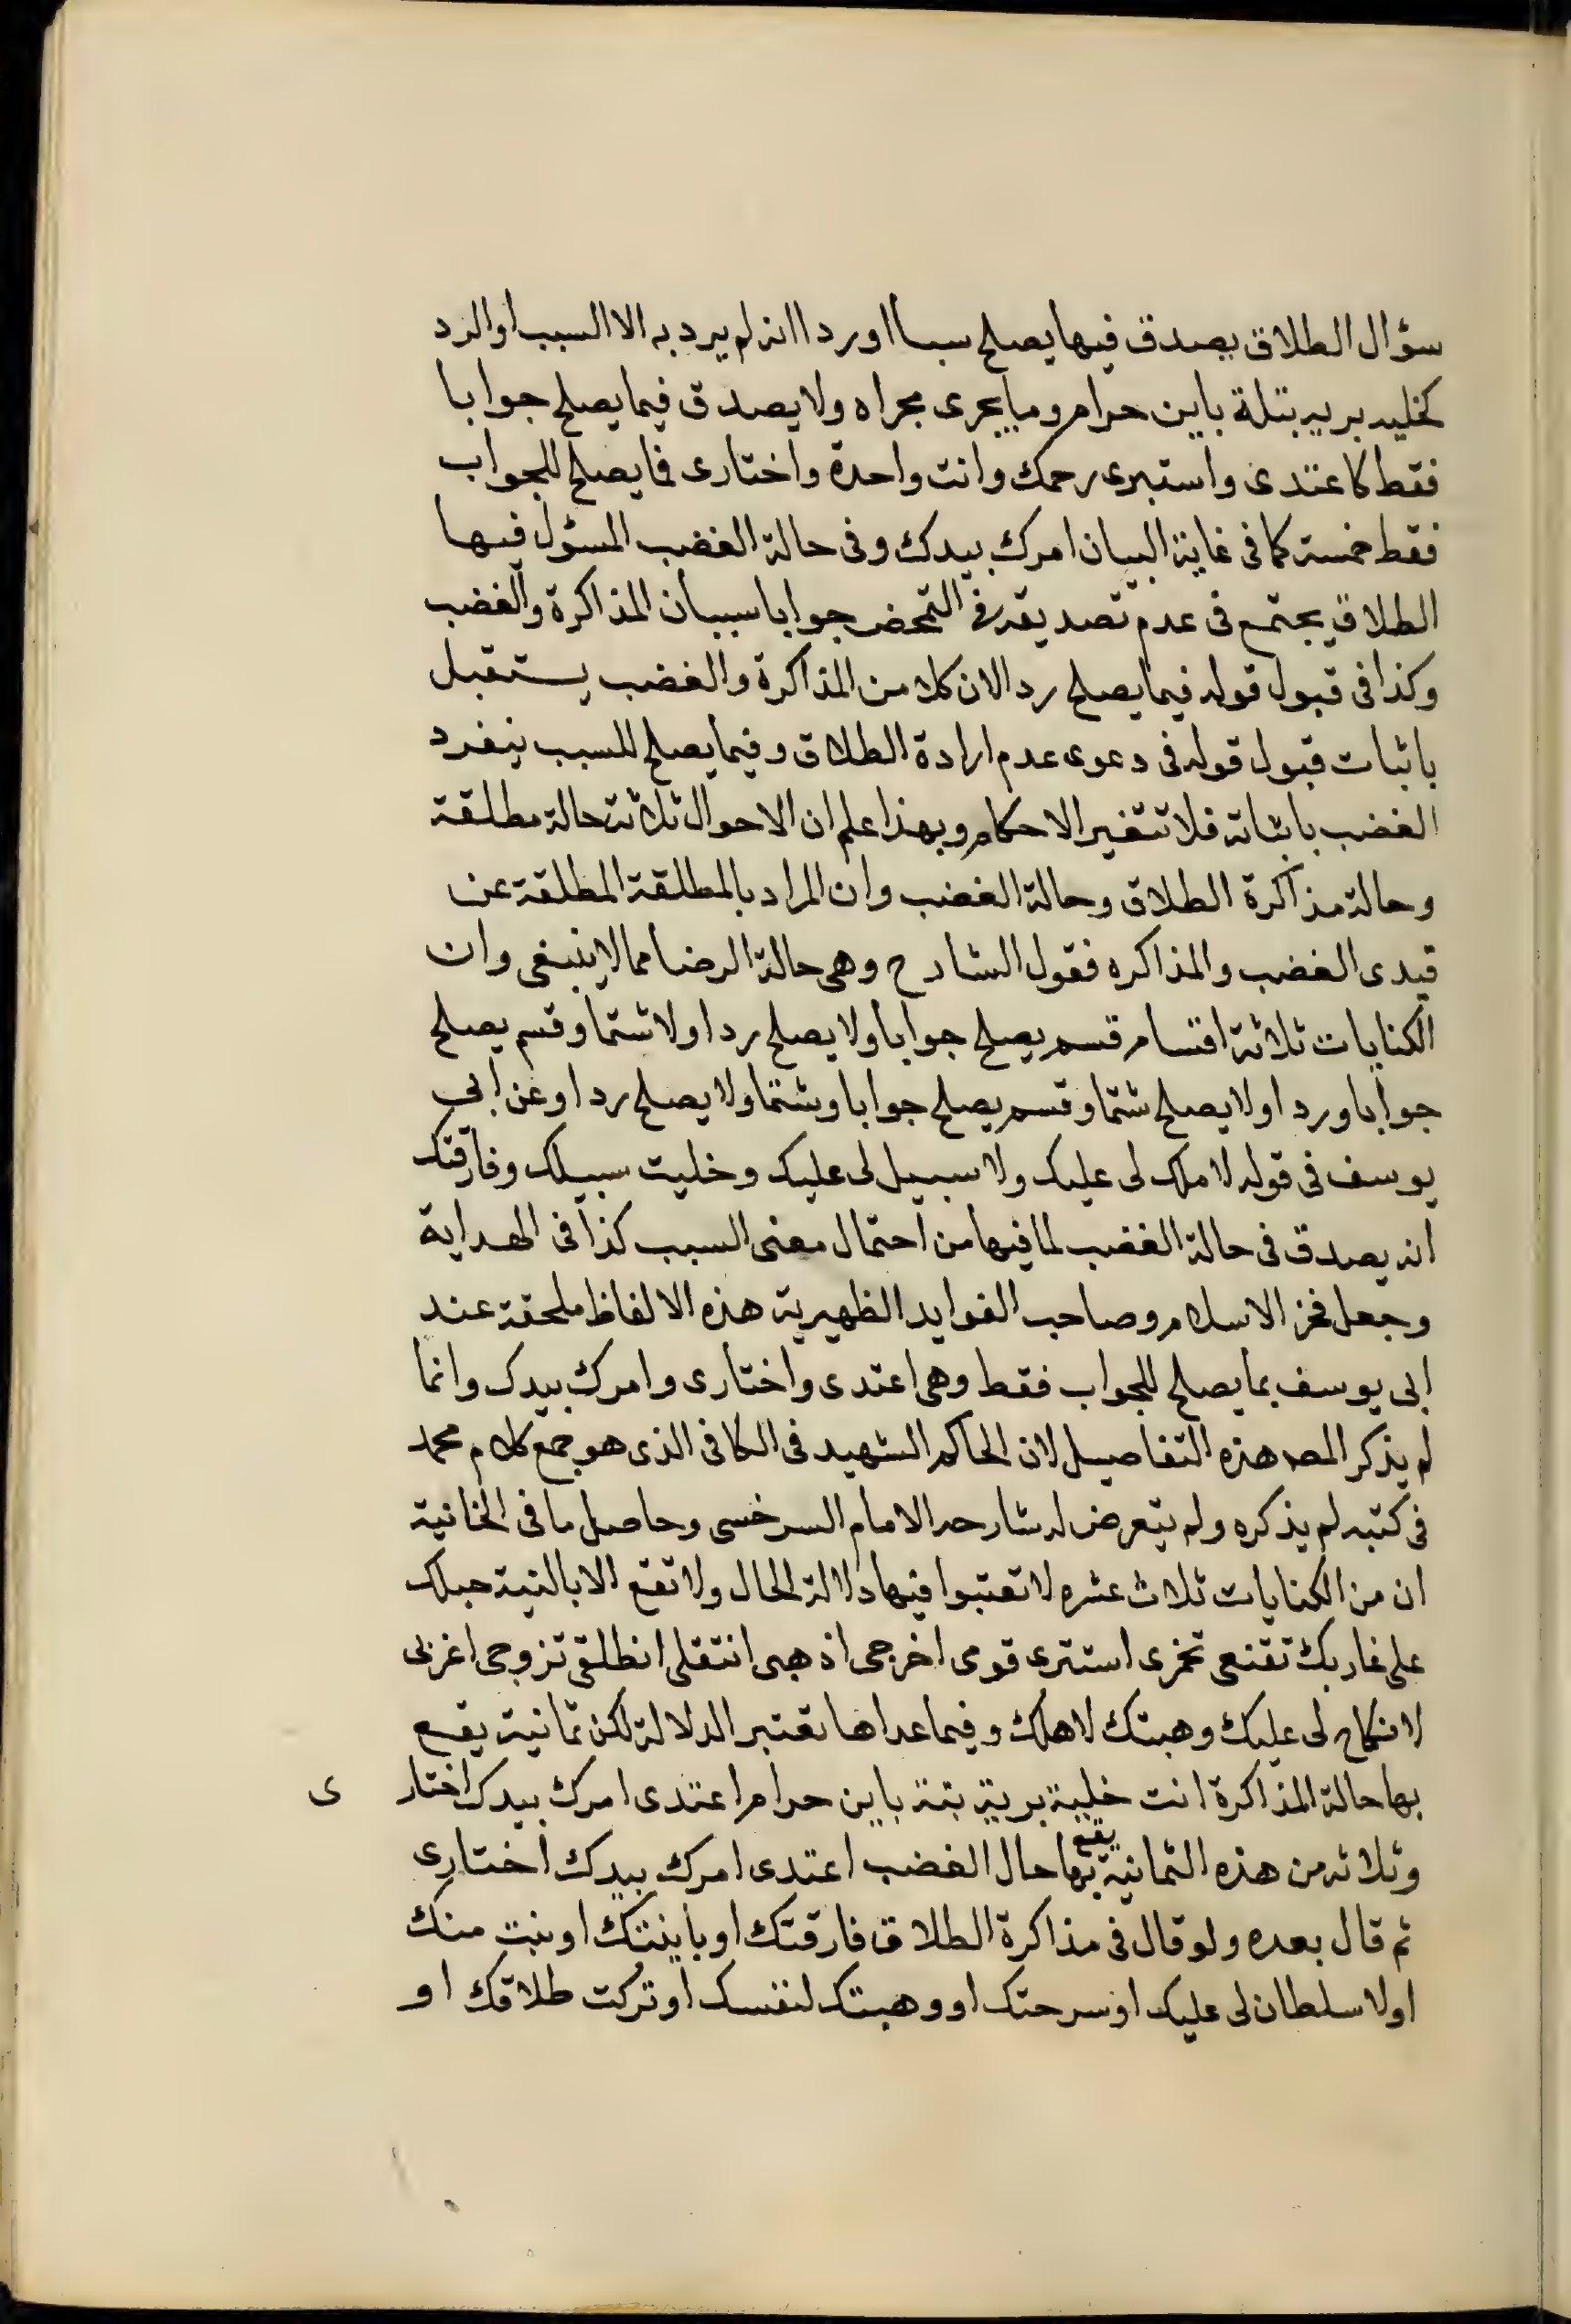 سؤال الطلاق يصدق فيها يصلح سبا اوردا انه لم يرد به الا السبب اوالرد
كخليه بريه بتلة باين حرام وما يجرى مجراه ولا يصدق فيما يصلح جوابا
فقط كاعتدى واستبرى رحمك وانت واحدة واختارى فما يصلح للجواب
فقط خمسة كما فى غاية البيان امرك بيدك وفى حالة الغضب المسؤل فيها
الطلاق يجتمع فى عدم تصديقه فى التمحض جوابا سببان المذاكرة والغضب
وكذا فى قبول قوله فيما يصلح ردا لان كلا من المذاكرة والغضب يستقبل
باثبات قبول قوله فى دعوى عدم ارادة الطلاق وفيما يصلح للسبب ينفرد
الغضب باثباته فلا تتغير الاحكام وبهذا علم ان الاحوال ثلاثة حالة مطلقة
وحالة مذاكرة الطلاق وحالة الغضب وان المراد بالمطلقة المطلقة عن
قيدى الغضب والمذاكره فقول الشارح وهى حالة الرضا مما لا ينبغى وان
الكنايات ثلاثة اقسام قسم يصلح جوابا ولا يصلح ردا ولا شتما وقسم يصلح
جوابا وردا ولا يصلح شتما وقسم يصلح جوابا وشتما ولا يصلح ردا وعن ابى
يوسف فى قوله لا ملك لى عليك ولا سبيل لى عليك وخليت سبيلك وفارقتك
انه يصدق فى حالة الغضب لما فيها من احتمال معنى السبب كذا فى الهداية
وجعل فخر الاسلام وصاحب الفوايد الظهيرية هذه الالفاظ ملحقة عند
ابى يوسف بما يصلح للجواب فقط وهى اعتدى واختارى وامرك بيدك وانما
لم يذكر المصـ هذه التفاصيل لان الحاكم الشهيد فى الكافى الذى هو جمع كلام محمد
فى كتبه لم يذكره ولم يتعرض له شارحه الامام السرخسى وحاصل ما فى الخانية
ان من الكنايات ثلاث عشره لا تعتبوا فيها دلالة الحال ولا تقع الا بالنية حبلك
على غاربك تقنعى تخمرى استترى قومى اخرجى اذهبى انتقلى انطلقى تزوجى اغزبى
لا نكاح لى عليك وهبتك لاهلك وفيما عداها تعتبر الدلالة لكن ثمانية يقع
بها حالة المذاكرة انت خلية برية بتة باين حرام اعتدى امرك بيدك اختار ى
وثلاثه من هذه الثمانية يقع بها حال الغضب اعتدى امرك بيدك اختارى
ثم قال بعده ولو قال فى مذاكرة الطلاق فارقتك او باينتك او بنت منك
اولا سلطان لى عليك او سرحتك او وهبتك لنفسك او تركت طلاقك او